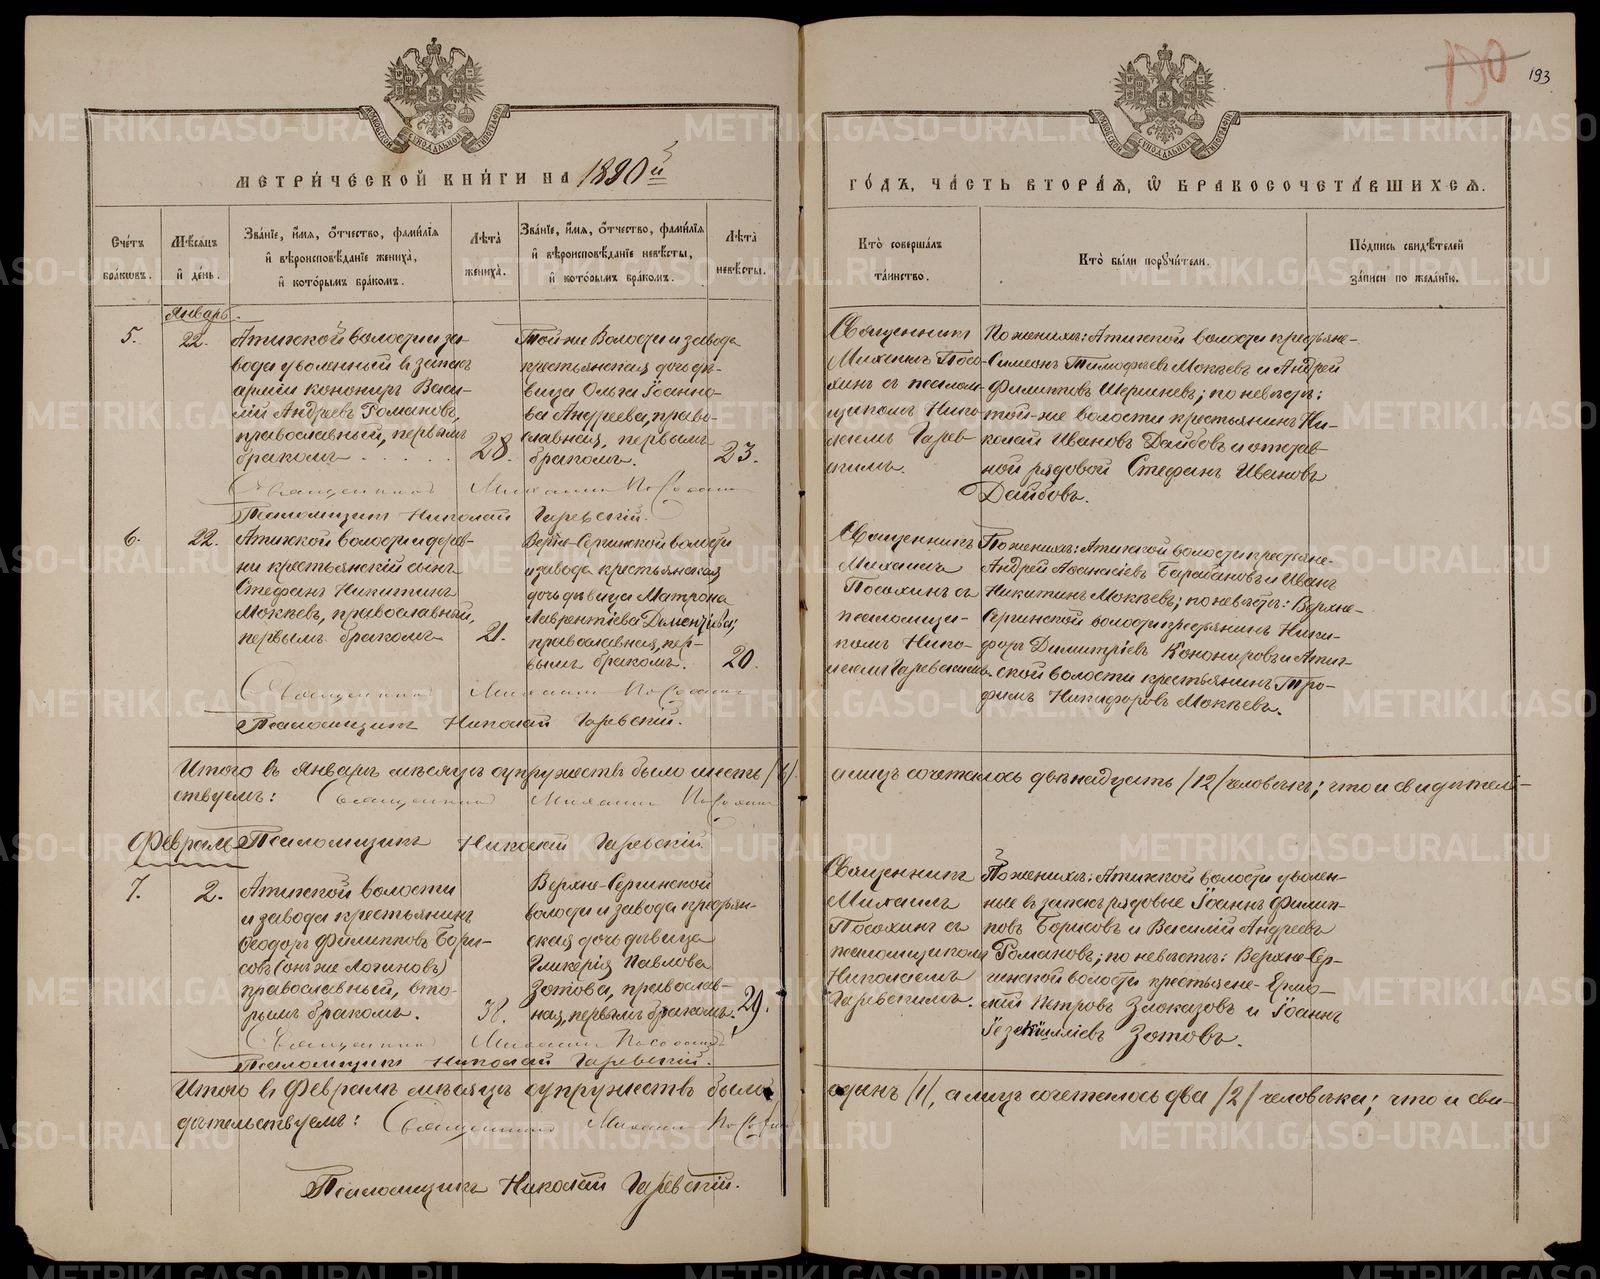 190
193
МОСКОВСКОЙ СѴНОДАЛЬНОЙ ТИПОГРАФІИ
МОСКОВСКОЙ СѴНОДАЛЬНОЙ ТИПОГРАФІИ
МЕТРИ́ЧЕСКОЙ КНИ́ГИ НА 1890й
ГО́ДЪ, ЧА́СТЬ ВТОРА́Я, Ѽ БРАКОСОЧЕТА́ВШИХСЯ.
Сче́тъ бра́ковъ.
Мѣ́сяцъ и̂ де́нь.
Зва́нїе, и́мя, ѻ́тчество, фами́лїя
и̂ вѣроисповѣ́данїе жениха̀,
и̂ кото́рымъ бра́комъ.
Лѣ́та̀ жениха̀.
Зва́нїе, и́мя, ѻ́тчество, фами́лїя
и̂ вѣроисповѣ́данїе невѣ́сты,
и̂ кото́рымъ бра́комъ.
Лѣ́та̀ невѣ́сты.
Кто̀ соверша́лъ та́инство.
Кто̀ бы́ли порꙋчи́тели.
По́дпись свидѣ́телей
за́писи по жела́нїю.
Январь.
5.
22.
Атигской волости и за-
вода уволенный в запас
армии канониръ Васи-
лий Андреевъ Романовъ,
православный, первымъ
бракомъ
28.
Той-же Волости и завода
крестьянская дочь дѣ-
вица Ольга Іоанно-
ва Андреева, право-
славная, первымъ
бракомъ.
23.
Священникъ
Михаилъ Посо-
хинъ съ псалом-
щикомъ Нико-
лаемъ Гарев-
скимъ.
По женихѣ: Атигской волости крестьяне-
Симеонъ Тимофѣевъ Мокѣевъ и Андрей
Филипповъ Шершневъ; по невѣстѣ:
той-же волости крестьянинъ Ни-
колай Ивановъ Даибовъ и отстав-
ной рядовой Стефанъ Ивановъ
Даибовъ.
Священникъ Михаилъ Посохинъ
Псаломщикъ Николай Гаревскій.
6.
22.
Атигской волости и дерев-
ни крестьянский сынъ
Стефанъ Никитинъ
Мокѣевъ, православный,
первымъ бракомъ
21.
Верхне-Сергинской волости
и завода крестьянская
дочь дѣвица Матрона
Лаврентіева Дементіева;
православная, пер-
вымъ бракомъ.
20.
Священникъ
Михаилъ
Посохинъ съ
псаломщи-
комъ Нико-
лаемъ Гаревскимъ.
По женихѣ: Атигской волости крестьяне-
Андрей Аѳанасіевъ Барабановъ и Иванъ
Никитинъ Мокѣевъ; по невѣстѣ: Верхне-
Сергинской волости крестьянинъ Ники-
форъ Димитріевъ Кононировъ и Атиг-
ской волости крестьянинъ Тро-
фимъ Никифоровъ Мокѣевъ.
Священникъ Михаилъ Посохинъ
Псаломщикъ Николай Гаревскій.
Итого въ Январѣ мѣсяцѣ супружествъ было шесть /6/
а лицъ сочеталось двѣнадцать /12/ человѣкъ; что и свидѣтель-
ствуемъ: Священникъ Михаилъ Посохинъ
Псаломщикъ Николай Гаревскій
Февраль
7.
2.
Атигской волости
и завода крестьянинъ
Ѳеодоръ Филипповъ Бори-
совъ (онъ же Логиновъ)
православный, вто-
рымъ бракомъ.
38.
Верхне-Сергинской
волости и завода крестьян-
ская дочь дѣвица
Гликерія Павлова
Зотова, православ-
ная, первымъ бракомъ.
29.
Священникъ
Михаилъ
Посохинъ съ
псаломщикомъ
Николаемъ
Гаревскимъ.
По женихѣ: Атигской волости уволен-
ные въ запасъ рядовые Іоаннъ Филип-
повъ Борисовъ и Василій Андреевъ
Романовъ; по невѣстѣ: Верхне-Сер-
гинской волости крестьяне- Ермо-
лай Петровъ Злоказовъ и Іоаннъ
Іезекіилліевъ Зотовъ.
Священникъ Михаилъ Посохинъ
Псаломщикъ Николай Гаревскій.
Итого въ Февралѣ мѣсяцѣ супружествъ было
одинъ /1/, а лицъ сочеталось два /2/ человѣка; что и сви-
дѣтельствуемъ: Священникъ Михаилъ Посохинъ
Псаломщикъ Николай Гаревскій.
METRIKI.GASO-URAL.RU